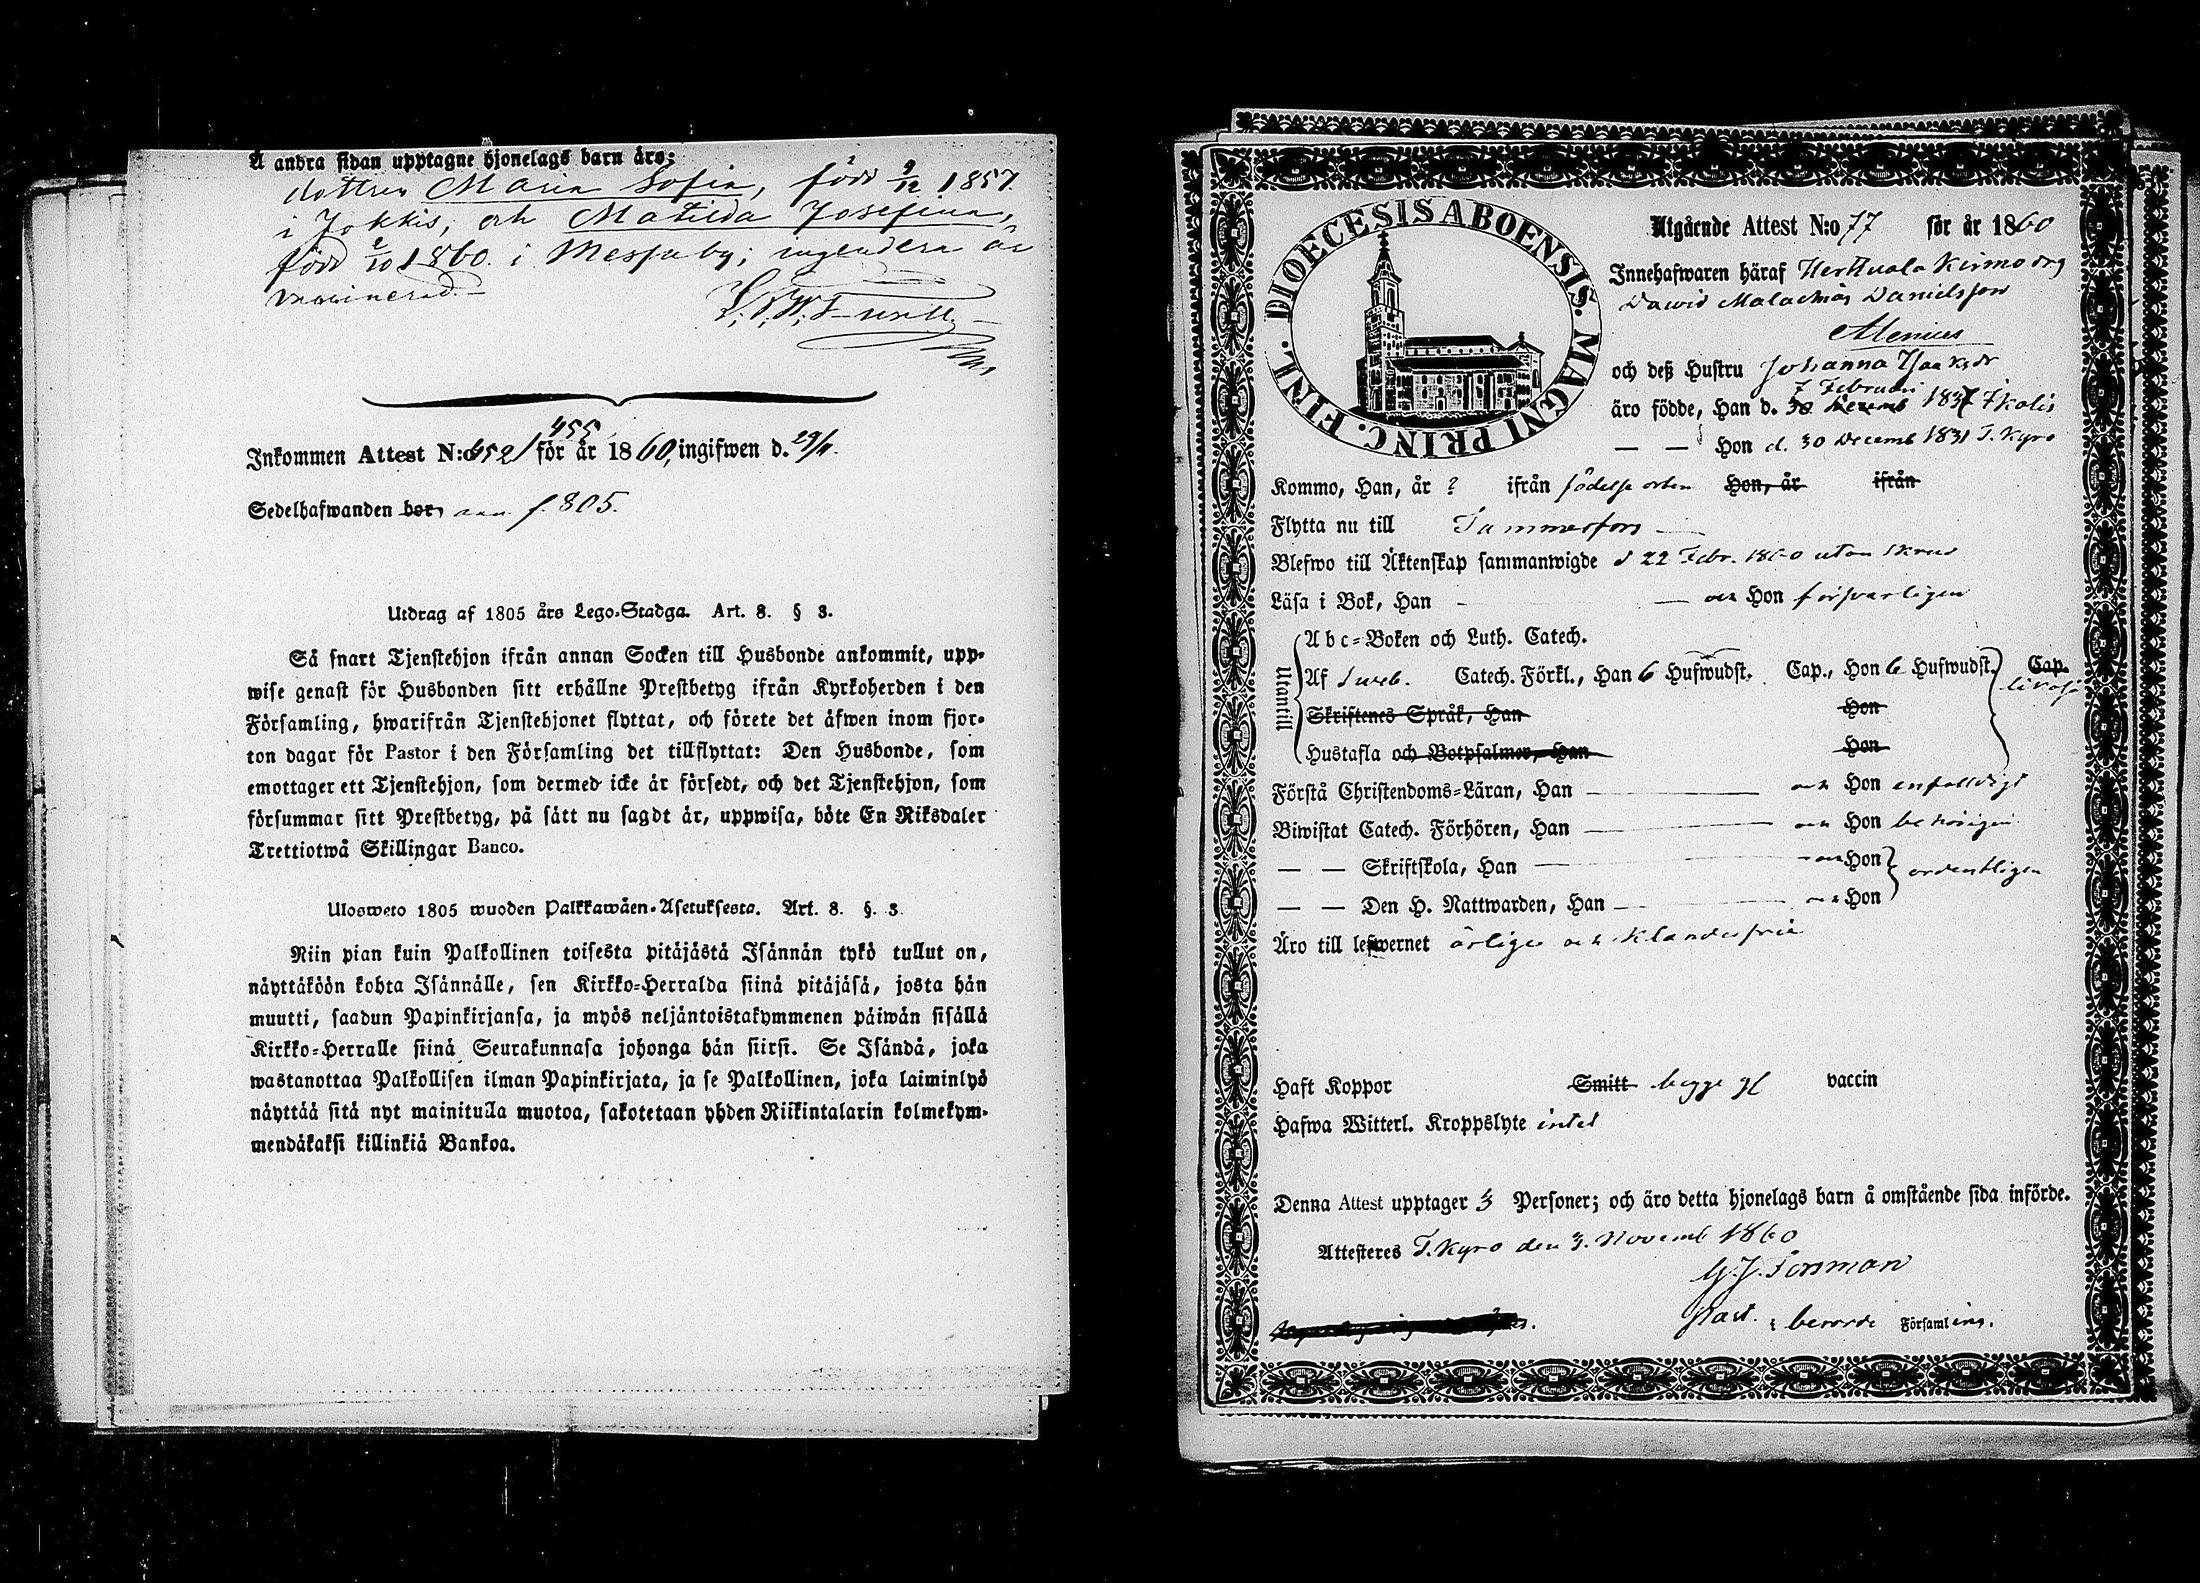 Å andra sidan upptagne hjonelags barn äro:
dottren Maria Sofia, född 9/12 1857.
i Jokkis, och Matilda Josefina,
född 2/10 1860. i Messuby; ingendera är
vaccinerad.
Inkommen Attest N:o 452/ 455 för år 1860, ingifwen d. 29/11.
Sedelhafwanden bor, f. 805.
Utdrag af 1805 års Lego-Stadga. Art. 8. § 3.
Så snart Tjenstehjon ifrån annan Socken till Husbonde ankommit, upp-
wise genast för Husbonden sitt erhållne Prestbetyg ifrån Kyrkoherden i den
Församling, hwarifrån Tjenstehjonet flyttat, och förete det äfwen inom fjor-
ton dagar för Pastor i den Församling det tillflyttat: Den Husbonde, som
emottager ett Tjenstehjon, som dermed icke är försedt, och det Tjenstehjon, som
försummar sitt Prestbetyg, på sätt nu sagdt är, uppwisa, böte En Riksdaler
Trettiotwå Skillingar Banco.
Ulosweto 1805 wuoden Palkkawäen-Asetuksesta. Art. 8. §. 3.
Niin pian kuin Palkollinen toisesta pitäjästä Isännän tykö tullut on,
näyttäköön kohta Isännälle, sen Kirkko-Herralda siinä pitäjäsä, josta hän
muutti, saadun Papinkirjansa, ja myös neljäntoistakymmenen päiwän sisällä
Kirkko-Herralle siinä Seurakunnasa johonga hän siirsi. Se Isändä, joka
wastanottaa Palkollisen ilman Papinkirjata, ja se Palkollinen, joka laiminlyö
näyttää sitä nyt mainitulla muotoa, sakotetaan yhden Riikintalarin kolmekym-
mendäkaksi killinkiä Bankoa.
DIOECESIS ABOENSIS. MAGNI PRINC. FINL.
Utgående Attest N:o 77 för år 1860
Innehafwaren häraf Herttuala Kirmo drg
Dawid Malachias Danielsson
Alenius
och deß Hustru Johanna Isaksdr
7 Februari
äro födde, Han d. 30 1837 Ikalis
— — Hon d. 30 Decemb 1831 T. Kyro
Kommo, Han, år ? ifrån födelse orten Hon, år ifrån
Flytta nu till Tammerfors
Blefwo till Äktenskap sammanwigde d 22 Febr. 1860 utan skrud
Läsa i Bok, Han — och Hon försvarligen
Utantill
Abc-Boken och Luth. Catech.
Af Sweb. Catech. Förkl., Han 6 Hufwudst. Cap., Hon 6 Hufwudst. Cap.
likaså
Skriftenes Språk, Han Hon
Hustafla och Botpsalmer, Han Hon
Förstå Christendoms-Läran, Han — och Hon enfalldigt
Biwistat Catech. Förhören, Han — och Hon behörigen
— — Skriftskola, Han — och Hon
ordentligen
— — Den H. Nattwarden, Han — och Hon
Äro till lefwernet ärlige och klanderfrie
Haft Koppor Smitt begge gl vaccin
Hafwa Witterl. Kroppslyte intet
Denna Attest upptager 3 Personer; och äro detta hjonelags barn å omstående sida införde.
Attesteras T. Kyro den 3. Novemb 1860
G. J. Forsman
Past. i berörde Församling.